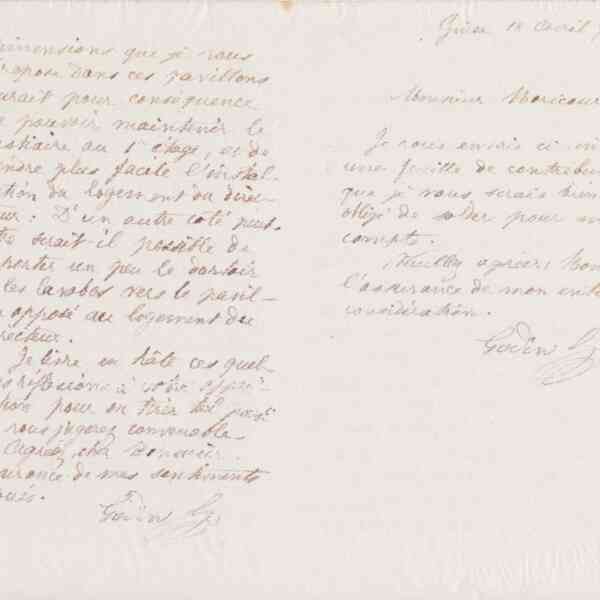 dimensions que je vous
propose dans ces pavillons
aurait pour conséquence
de pouvoir maintenir le
vestiaire au 1er étage, et de
rendre plus facile l'instal-
ation du logement du direc-
eur: D'un autre coté peut-
tre serait-il possible de
porter un peu le dortoir
les lavabos vers le pavil-
n opposé au logement du
recteur.
Je livre en hâte ces quel-
s réflexions à votre appré-
pour en tirer
vous jugerez convenable.
Agréez, cher Monsieur.
urance de mes sentiments
oués.
Godin
Guise 18 avril
Monsieur Moricour
Je vous envoie ci in
une feuille de contribu
que je vous serais bien
obligé de solder pour m
compte.
Veuillez agréer, Mon
l'assurance de mon enti
considération.
Godin